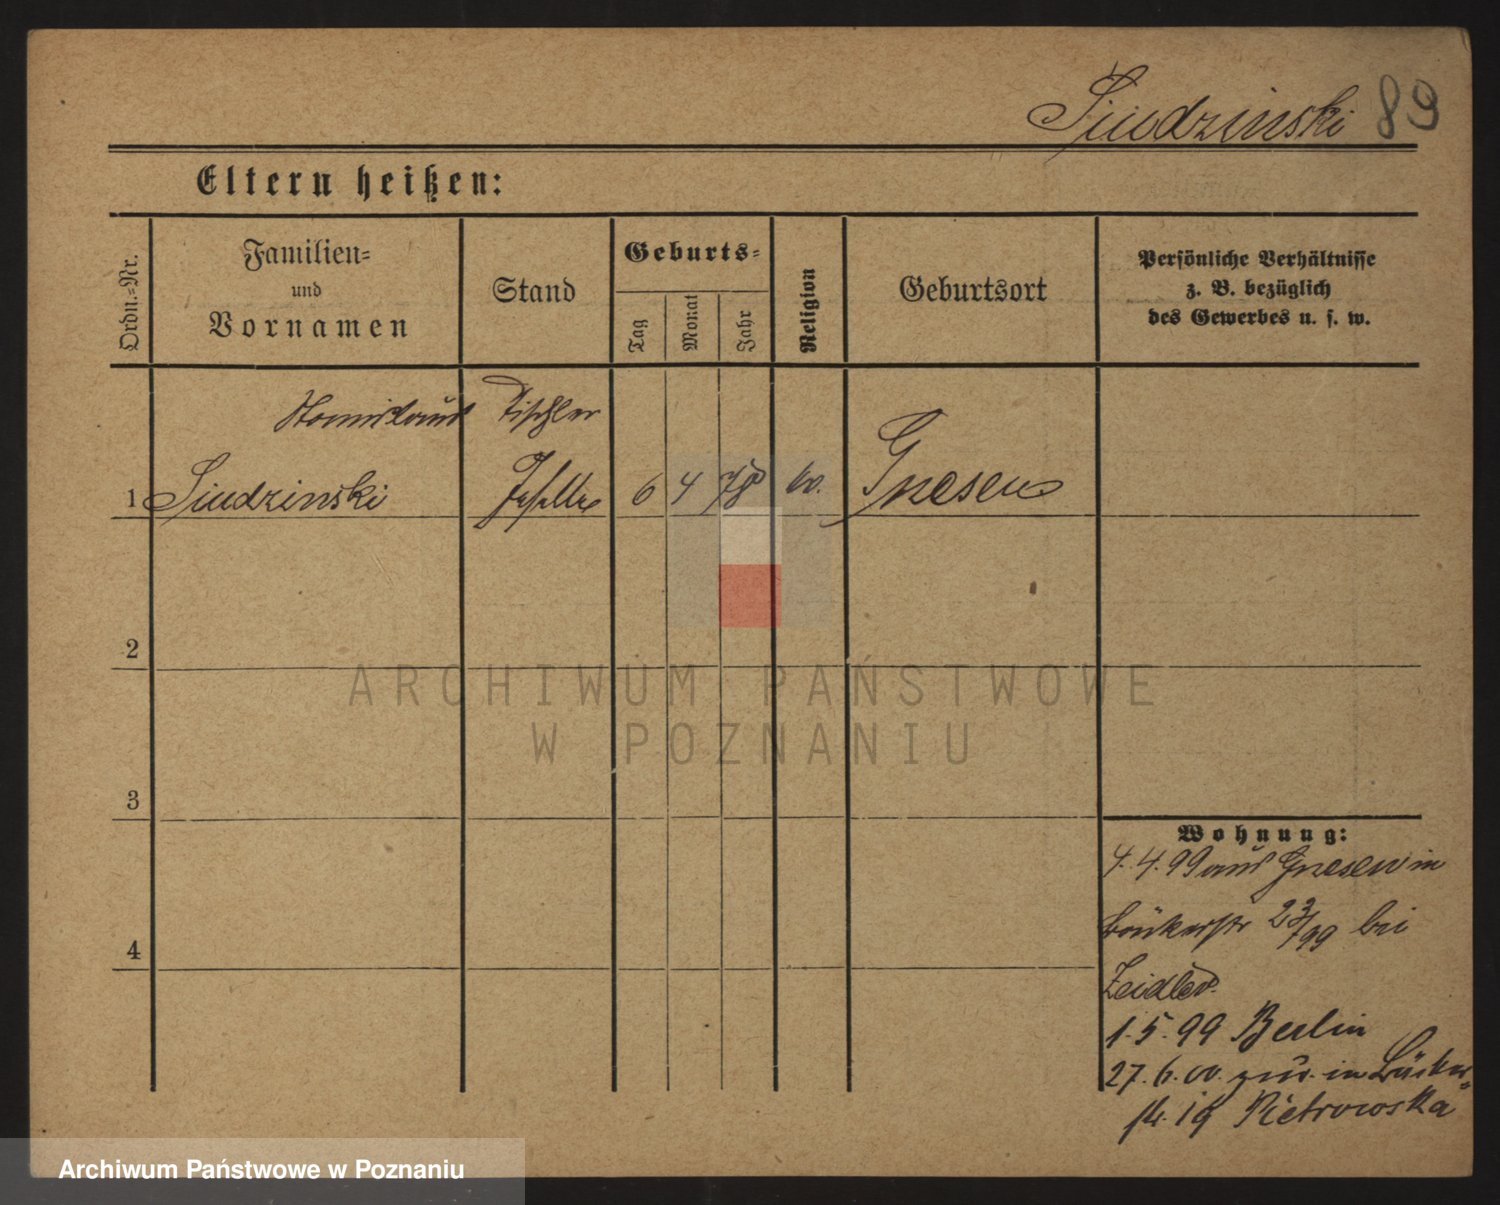 Siudzinski 89
Eltern heißen:
Ordn.-Nr.
Familien-
und
Vornamen
Stand
Geburts-
Tag
Monat
Jahr
Religion
Geburtsort
Persönliche Verhältnisse
z. B. bezüglich
des Gewerbes u. s. w.
Stanislaus Tischler
1 Siudzinski Geselle 6 4 78 Gnesen
2
3
4
Wohnung:
4.4.99 aus Gnesen in
23/99 bei
Zeidler.
1.5.99 Berlin
27.6.00. zur. in Bäcker-
str. 19 Pietrowska
ARCHIWUM PAŃSTWOWE
W POZNANIU
Archiwum Państwowe w Poznaniu